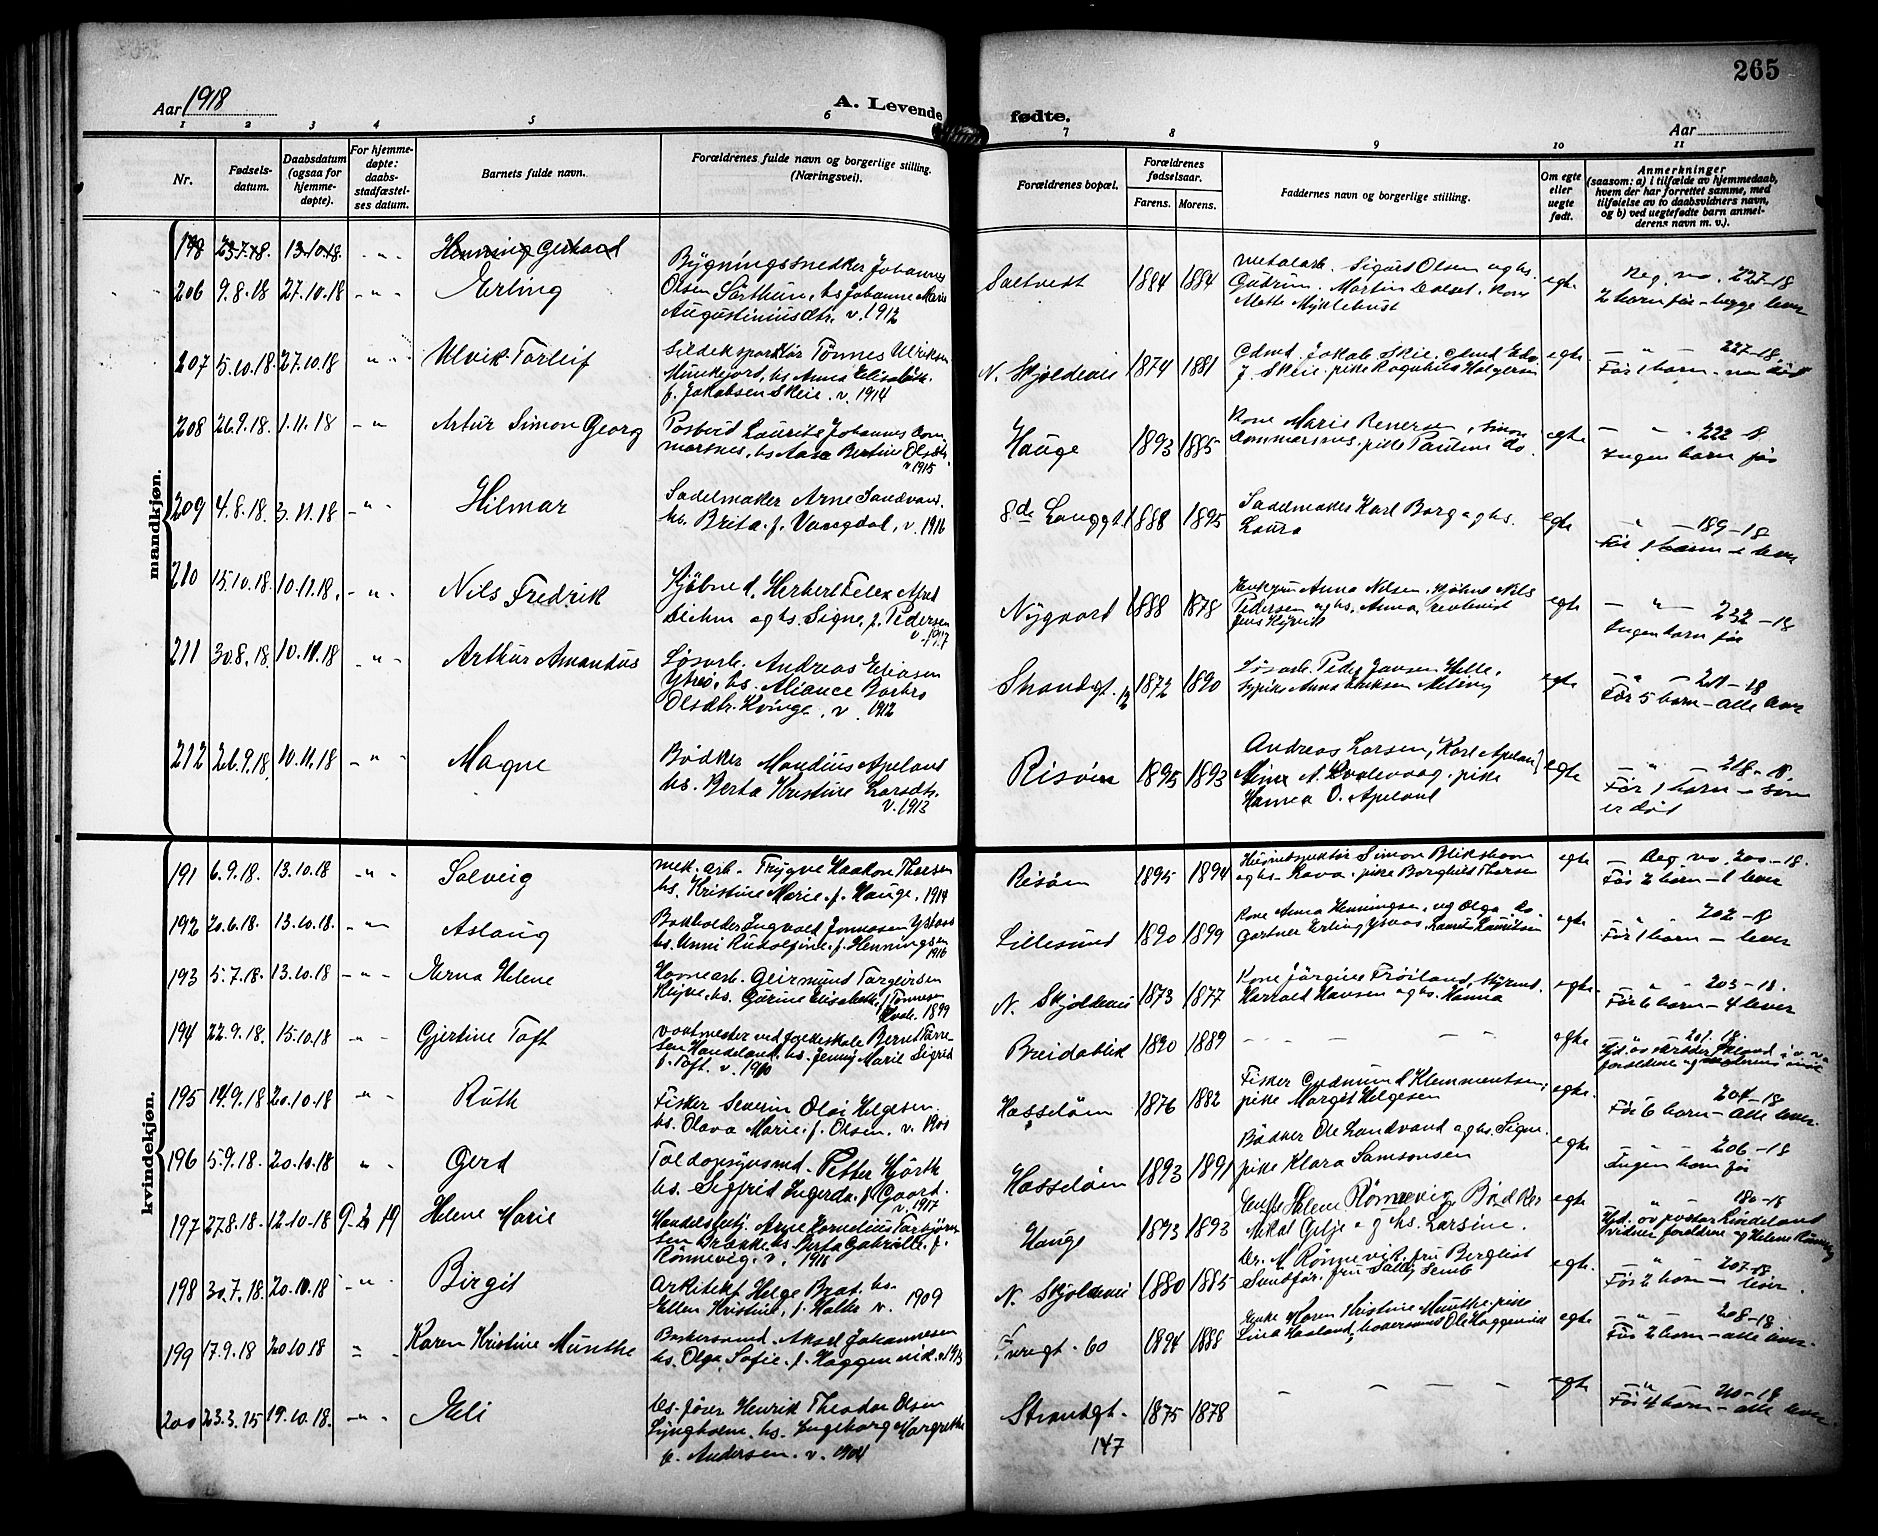 265
Aar 1918
A. Levende fødte.
Aar
1 2 3 4 5 6 7 8 9 10 11
Nr.
Fødsels-
datum.
Daabsdatum
(ogsaa for
hjemme-
døpte).
For hjemme-
døpte:
daabs-
stadfæstel-
ses datum.
Barnets fulde navn.
Forældrenes fulde navn og borgerlige stilling.
(Næringsvei).
Forældrenes bopæl.
Forældrenes
fødselsaar.
Farens. Morens.
Faddernes navn og borgerlige stilling.
Om egte
eller
uegte
født.
Anmerkninger
(saasom: a) i tilfælde av hjemmedaab,
hvem der har forrettet samme, med
tilføielse av to daabsvidners navn,
og b) ved uegtefødte barn anmel-
derens navn m. v.).
mandkjøn.
198 23.7.18 13.10.18 - " - Henning Gerhard
206 9.8.18 27.10.18 - " - Erling
Bygningssnedker Johannes
Olsen Sørthun, hs Johanne Marie
Augustiniusdtr. v. 1912
Saltveit 1884 1884
metalarb. Sigurd Olsen og hs.
Gudrun. Martin
Mette Myklebust
egte
Reg. no. 227-18
2 barn før - begge lever
207 5.10.18 27.10.18 " - Ulvik Torleif
Sildeksportør Tønnes Ulriksen
hs Anna Elisabeth
f. Jakobsen Skeie. v. 1914
N. Skjoldevei 1874 1881
Gdmd. Jakob Skeie. Gdmd
J. Skeie. pike Ragnhild
egte
- " - 227-18.
Før 1 barn - død
208 26.9.18. 1.11.18 - " Artur Simon Georg
Postbud Laurits Johannes
hs Aasa Bertine Olsdtr.
v. 1915
Hauge 1893 1885
Kone Marie Simon
pike Pauline do
egte
- " - 222-18
Ingen barn før
209 4.8.18. 3.11.18 - " - Hilmar
Sadelmaker Arne Sandven
hs. Brita f. Vangdal, v. 1916
8de Langgt. 1888 1895
Sadelmaker Karl Borg og hs.
Laura
egte
- " - 189-18
Før 1 barn - lever
210 15.10.18. 10.11.18. - " - Nils Fredrik
Kjøbmd. Herbert Felix
Diehm og hs. Signe f. Pedersen
v. 1917
Nygaard 1888 1878
Anna Nilsen. Kjøbmd Nils
Pedersen og hs. Anna,
egte
- " - 232-18
Ingen barn før
211 30.8.18 10.11.18 - " - Arthur Amandus
Løsarb. Andreas Eliasen
hs. Aliance
Olsdtr. Kvinge. v. 1912
Strandgt. 12 1872 1890
Løsarb. Peder Jansen Helle.
pike Anna Eriksen
egte
- " - 201-18
Før 5 barn - alle lever
212 26.9.18 10.11.18 - " - Magne
Bødker Mandius Apeland
hs. Berta Kristine Larsdtr.
v. 1913
Risøen 1895 1893
Andreas Larsen, Karl Apeland
pike
Hanna O. Apeland
egte
- " - 218-18.
Før 1 barn - som
er død
kvindekjøn.
191 6.9.18. 13.10.18 - " - Solveig
mek. arb. Trygve Haakon Thorsen
hs. Kristine Marie f. Hauge. 1914
Risøen 1895 1894
Simon Blikshavn
og hs. pike Borghild Thorsen
egte
- Reg. no. 200-18.
Før 2 barn - 1 lever
192 20.6.18. 13.10.18. - " - Aslaug
Bokholder Ingvald Jonassen Ystaas
hs. Unni Rudolfine f. Henningsen
1916
Lillesund 1890 1899
Kone Anna Henningsen, og Olga do.
Gartner Erling Ystaas
egte
- " - 202-18
Før 1 barn - lever
193 5.7.18. 13.10.18 - " - Erna Helene
Havnearb. Geirmund Torgeirsen
hs. Gurine Elisabeth f. Tønnesen
1899
N. Skjoldevei 1873 1877
Kone Jørgine Frøiland
Harrald Hansen og hs. Hanna
egte
- " - 203-18.
Før 6 barn - 4 lever
194 22.9.18. 15.10.18 - " - Gjertine Toft
vaktmester ved folkeskole Bernt
Handeland. hs. Jenny Marie Sigrid
f. Toft. v. 1910
Breidablik 1890 1889
- - - - - -
egte
- 201-18.
195 14.9.18 20.10.18 - " - Ruth
Fisker Severin Olai Helgesen.
hs. Olava Marie f. Olsen. v. 1900
Hasseløen 1876 1882
Fisker Gudmund Klemmentsen,
pike Margit Helgesen
egte
204-18
Før 6 barn - alle lever
196 5.9.18. 20.10.18 " - Gerd
Toldopsynsmd. Petter Hjorth
hs. Sigfrid Ingerda f. Gaard.
v. 1917
Hasseløen 1893 1891
Bødker Ole Landvand og hs. Signe.
pike Klara Samsonsen
egte
- " - 206-18
Ingen barn før
197 27.8.18. 12.10.18 9-2-19 Helene Marie
Handelsbetj. Arne Kornelius
hs. Berta Gabrielle f.
Rønnevig. v. 1918
Hauge 1893 1893
Enke Helene Rønnevig Bødker
Mikal Gilje og hs. Larsine.
egte
- " - 180-18
vidner foreldrene og Helene Rønnevig
198 30.7.18. 20.10.18 - " - Birgit
Arkitekt Helge hs.
Ellen Kristine f. v. 1909
N. Skjoldevei 1880 1885
Dr. M. Rønnevik. fru Bergliot
Sundfør. fru
egte.
- " - 207-18
Før 2 barn - lever.
199 17.9.18 20.10.18 = - Karen Kristine Munthe
Baskersvend. Aksel Johannesen
hs. Olga Sofie f. Haggenvik. v. 1913
gt. 60 1894 1888
Enke Karen Kristine Munthe. pike
Lina Haaland, Ole Haggenvik
egte
- " - 208-18
Før 2 barn - alle lever.
200 23.3.15 19.10.18. - " - Eli
Henrik Theodor Olsen
Lyngholm. hs. Ingeborg Margrethe
f. Andersen. v. 1904
Strandgt. 147 1875 1878
- - - - -
egte
- " - 210-18
Før 4 barn - alle lever.